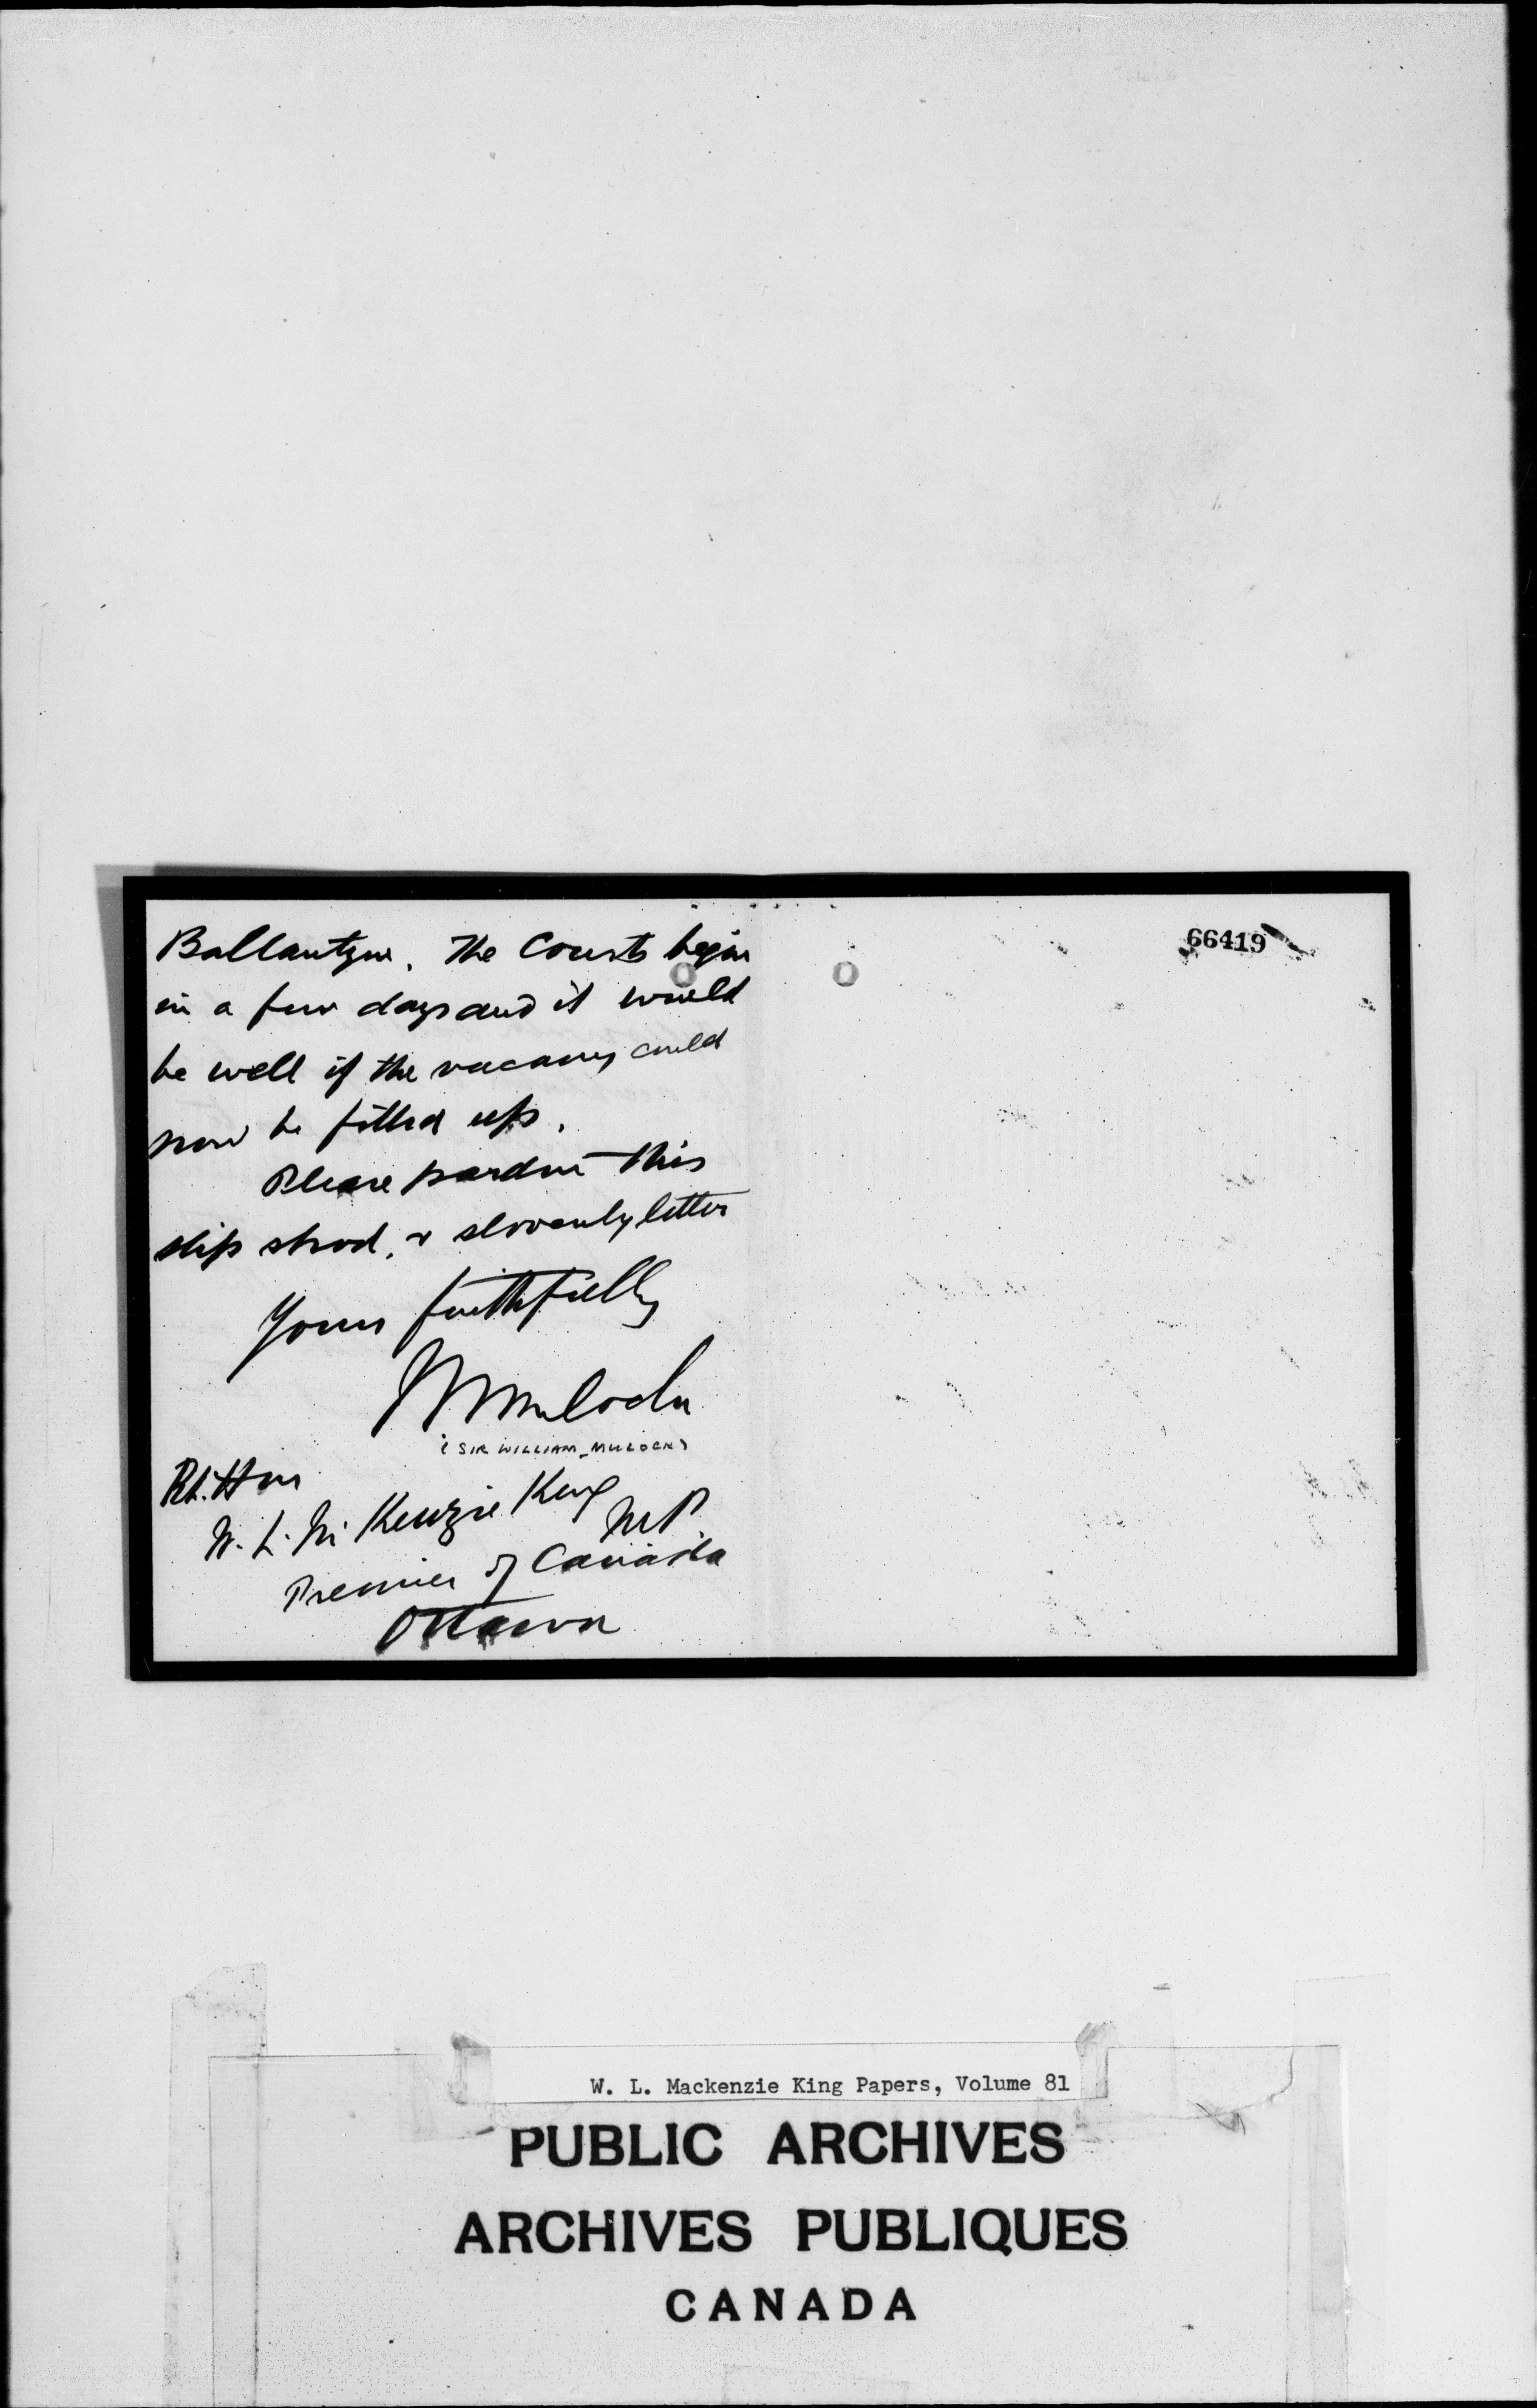 Ballantyne. The Courts begin
in a few days and it would
be well if the vacancy could
now be filled up.
Please pardon this
slip shod, & slovenly letter
Yours faithfully
W Mulock
(SIR WILLIAM MULOCK)
Rt. Hon
W. L. McKenzie King
MP
Premier of Canada
Ottawa
66419
W. L. Mackenzie King Papers, Volume 81
PUBLIC ARCHIVES
ARCHIVES PUBLIQUES
CANADA